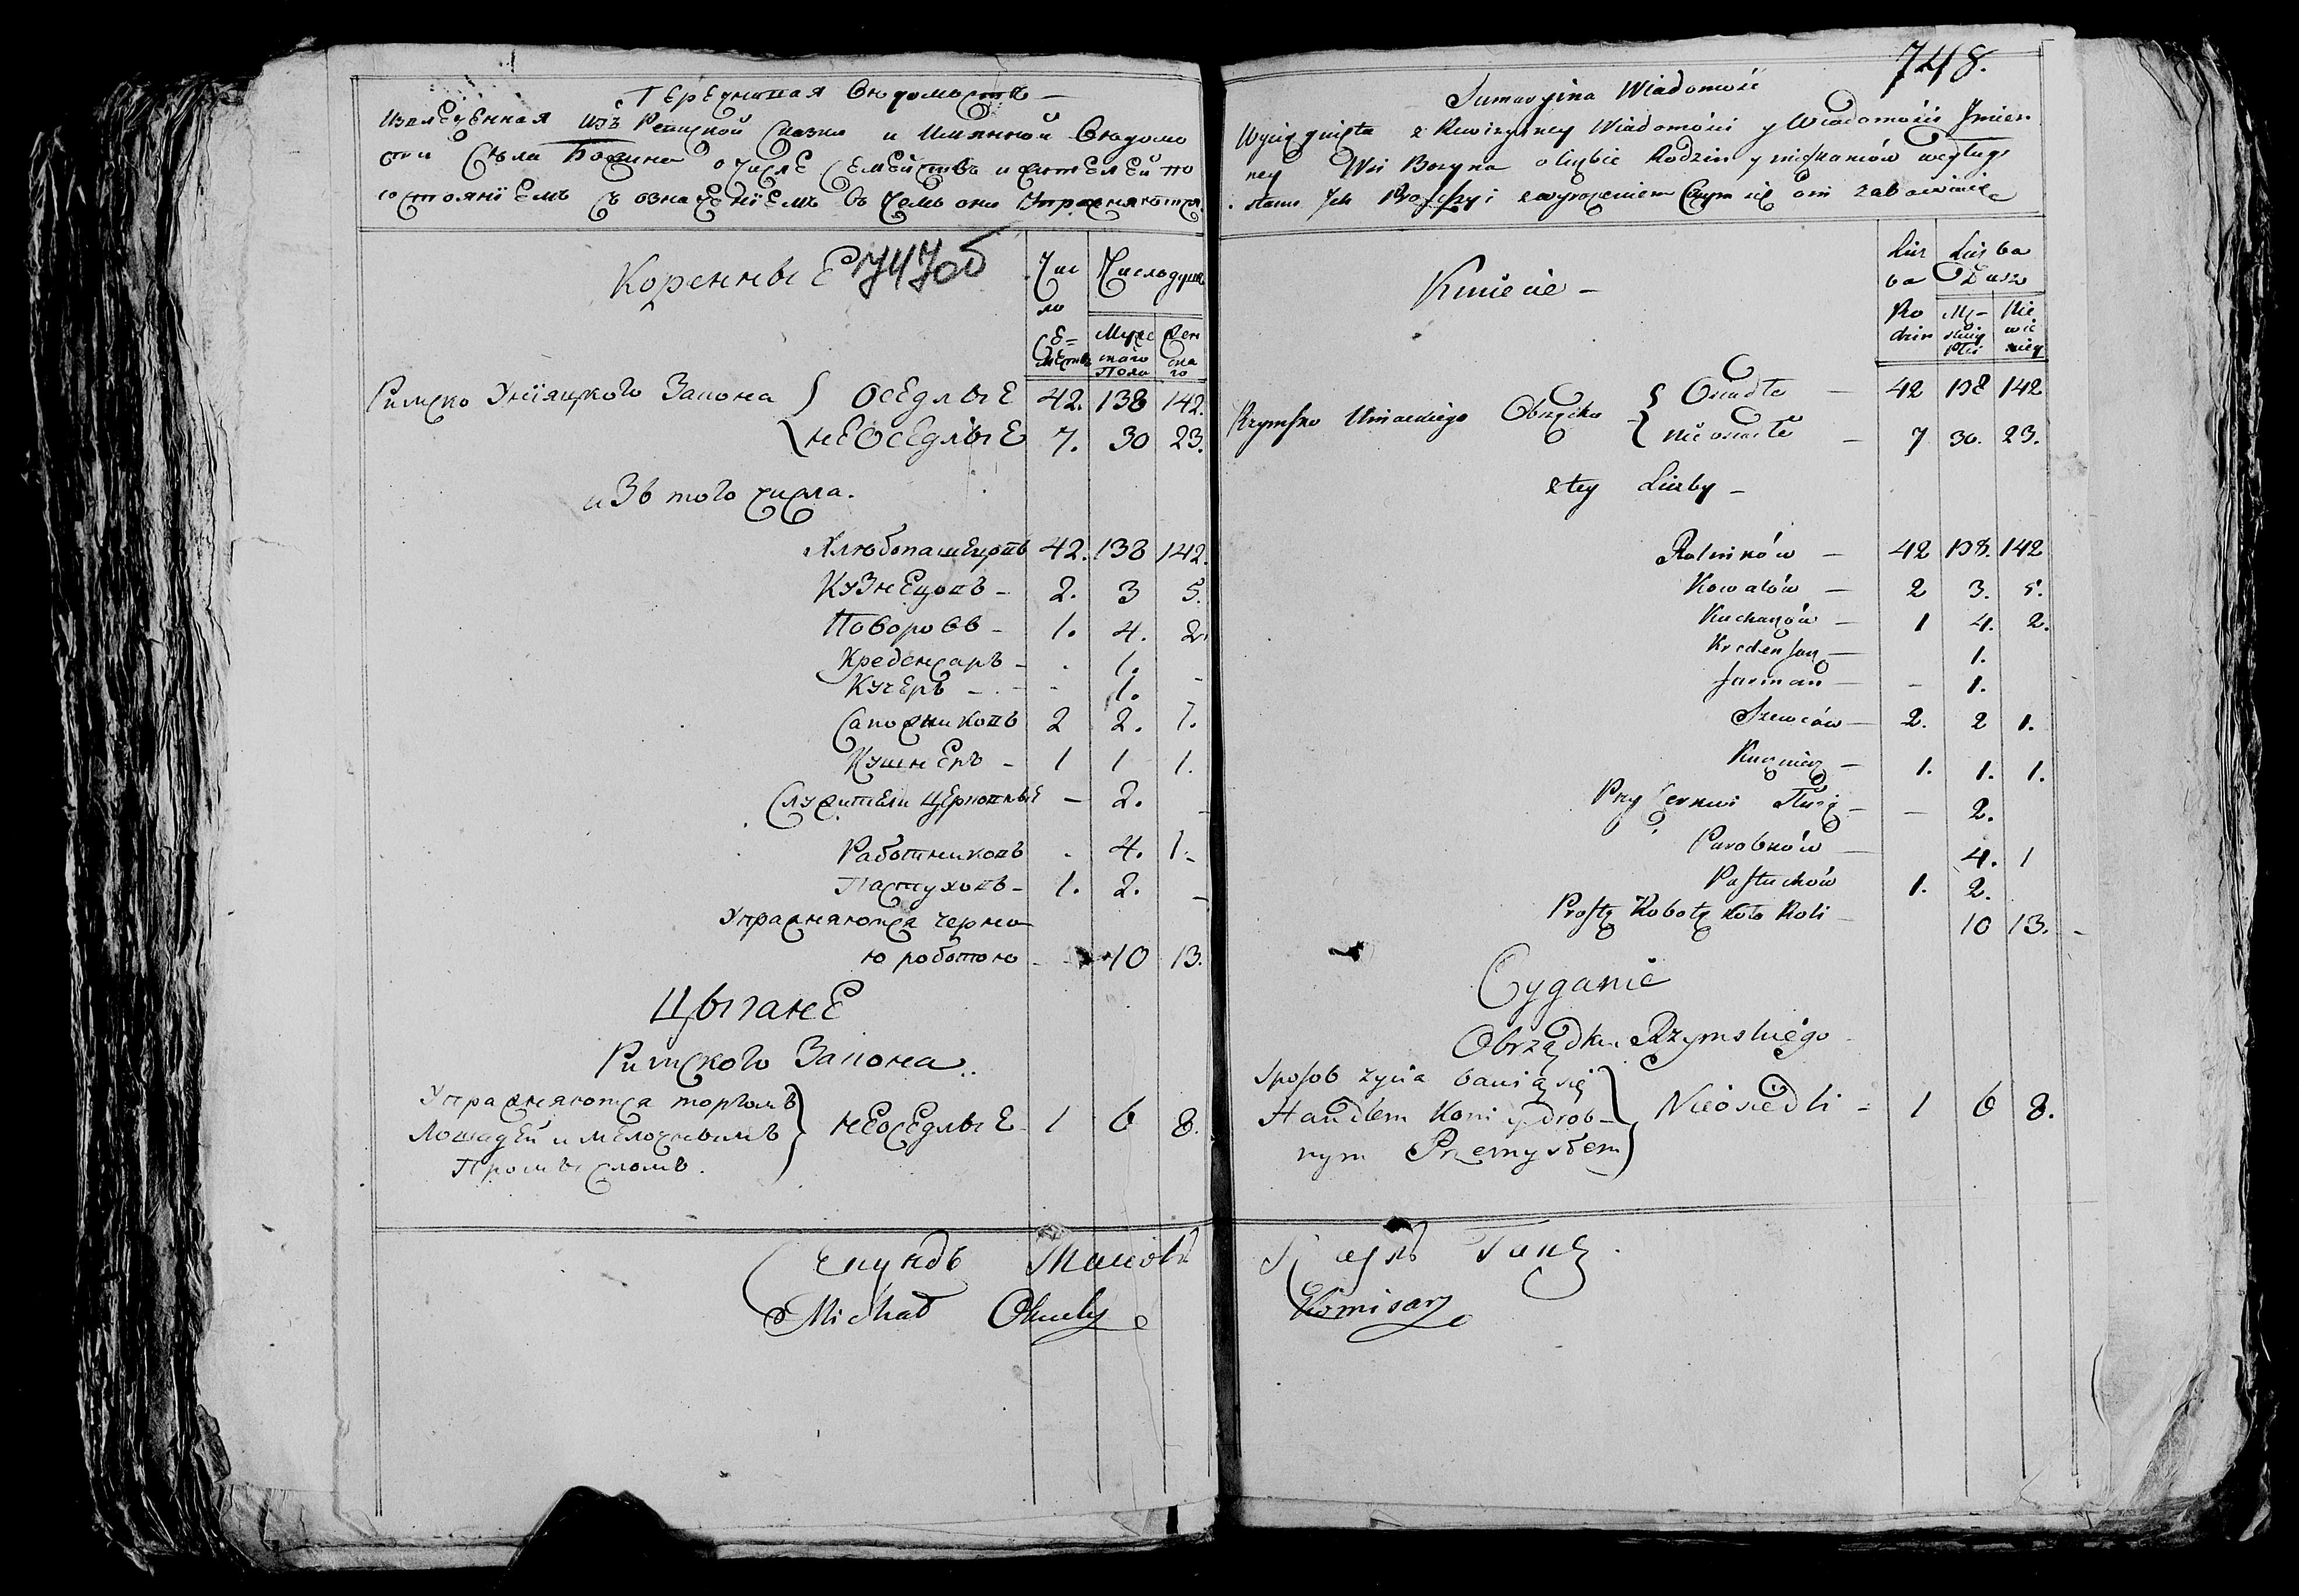 Перечневая Ведомость
Извлеченная изъ Ревизской Сказки и Имянной Ведомо
сти Села Божина о числе Семействъ и жителей по
состояніемъ съ означеніемъ въ чемъ они Упражняются
Коренные 747об
Чис
ло
Се=
мействъ
Число душъ
Мужс
каго
Пола
Жен
ска
го
Римско Уніяцкого Закона { оседлые 42. 138 142.
{ неоседлые 7. 30 23.
изъ того числа.
Хлѣбопашецовъ 42. 138 142.
Кузнецовъ - 2. 3 5.
Поворовъ - 1. 4. 2.
Креденсаръ - . 1. -
Кучеръ - - 1.
Сапожниковъ 2 2. 1.
Кушнеръ - 1 1 1.
Служители церковные - 2. -
Работниковъ . 4. 1.
Пастуховъ - 1. 2. -
Упражняются черно
ю роботою - 10 13.
Цыгане
Римского Закона
Упражняются торгомъ
Лошадей и мелочнымъ
Промысломъ.
неоседлые 1 6 8.
Michał
748.
Sumaryina Wiadomość
Wyciągnięta z Rewizyiney Wiadomości y Wiadomości Jmien
ney Wsi Bożyna o liczbie Rodzin y mieszkańców według
stanu Jch z wyrożeniem Czym się oni zabawiaią
Kmiecie -
Licz
ba
Ro
dzin
Liczba
Dusz
Mę-
skiey
Płci
Nie
wie
ściey
Rzymsko Uniackiego Obrządku { Osiadłe - 42 138 142
{ nie osiadłe - 7 30. 23.
z tey Liczby -
Rolników - 42 138. 142
Kowalów - 2 3. 5.
Kucharzów - 1 4. 2.
Kredensarz - 1.
Furman - - 1.
Szewców - 2. 2 1.
Kusznierz - 1. 1. 1.
Przy Cerkwi Służą - - 2.
Parobków - 4. 1
Pastuchów 1. 2.
Prostą Robotą koło Roli - 10 13. -
Cyganie
Obrządku Rzymskiego
Sposob życia bawią się
Handlem Koni y drob-
nym Przemysłem
Nieosiedli - 1 6 8.
Komisarz